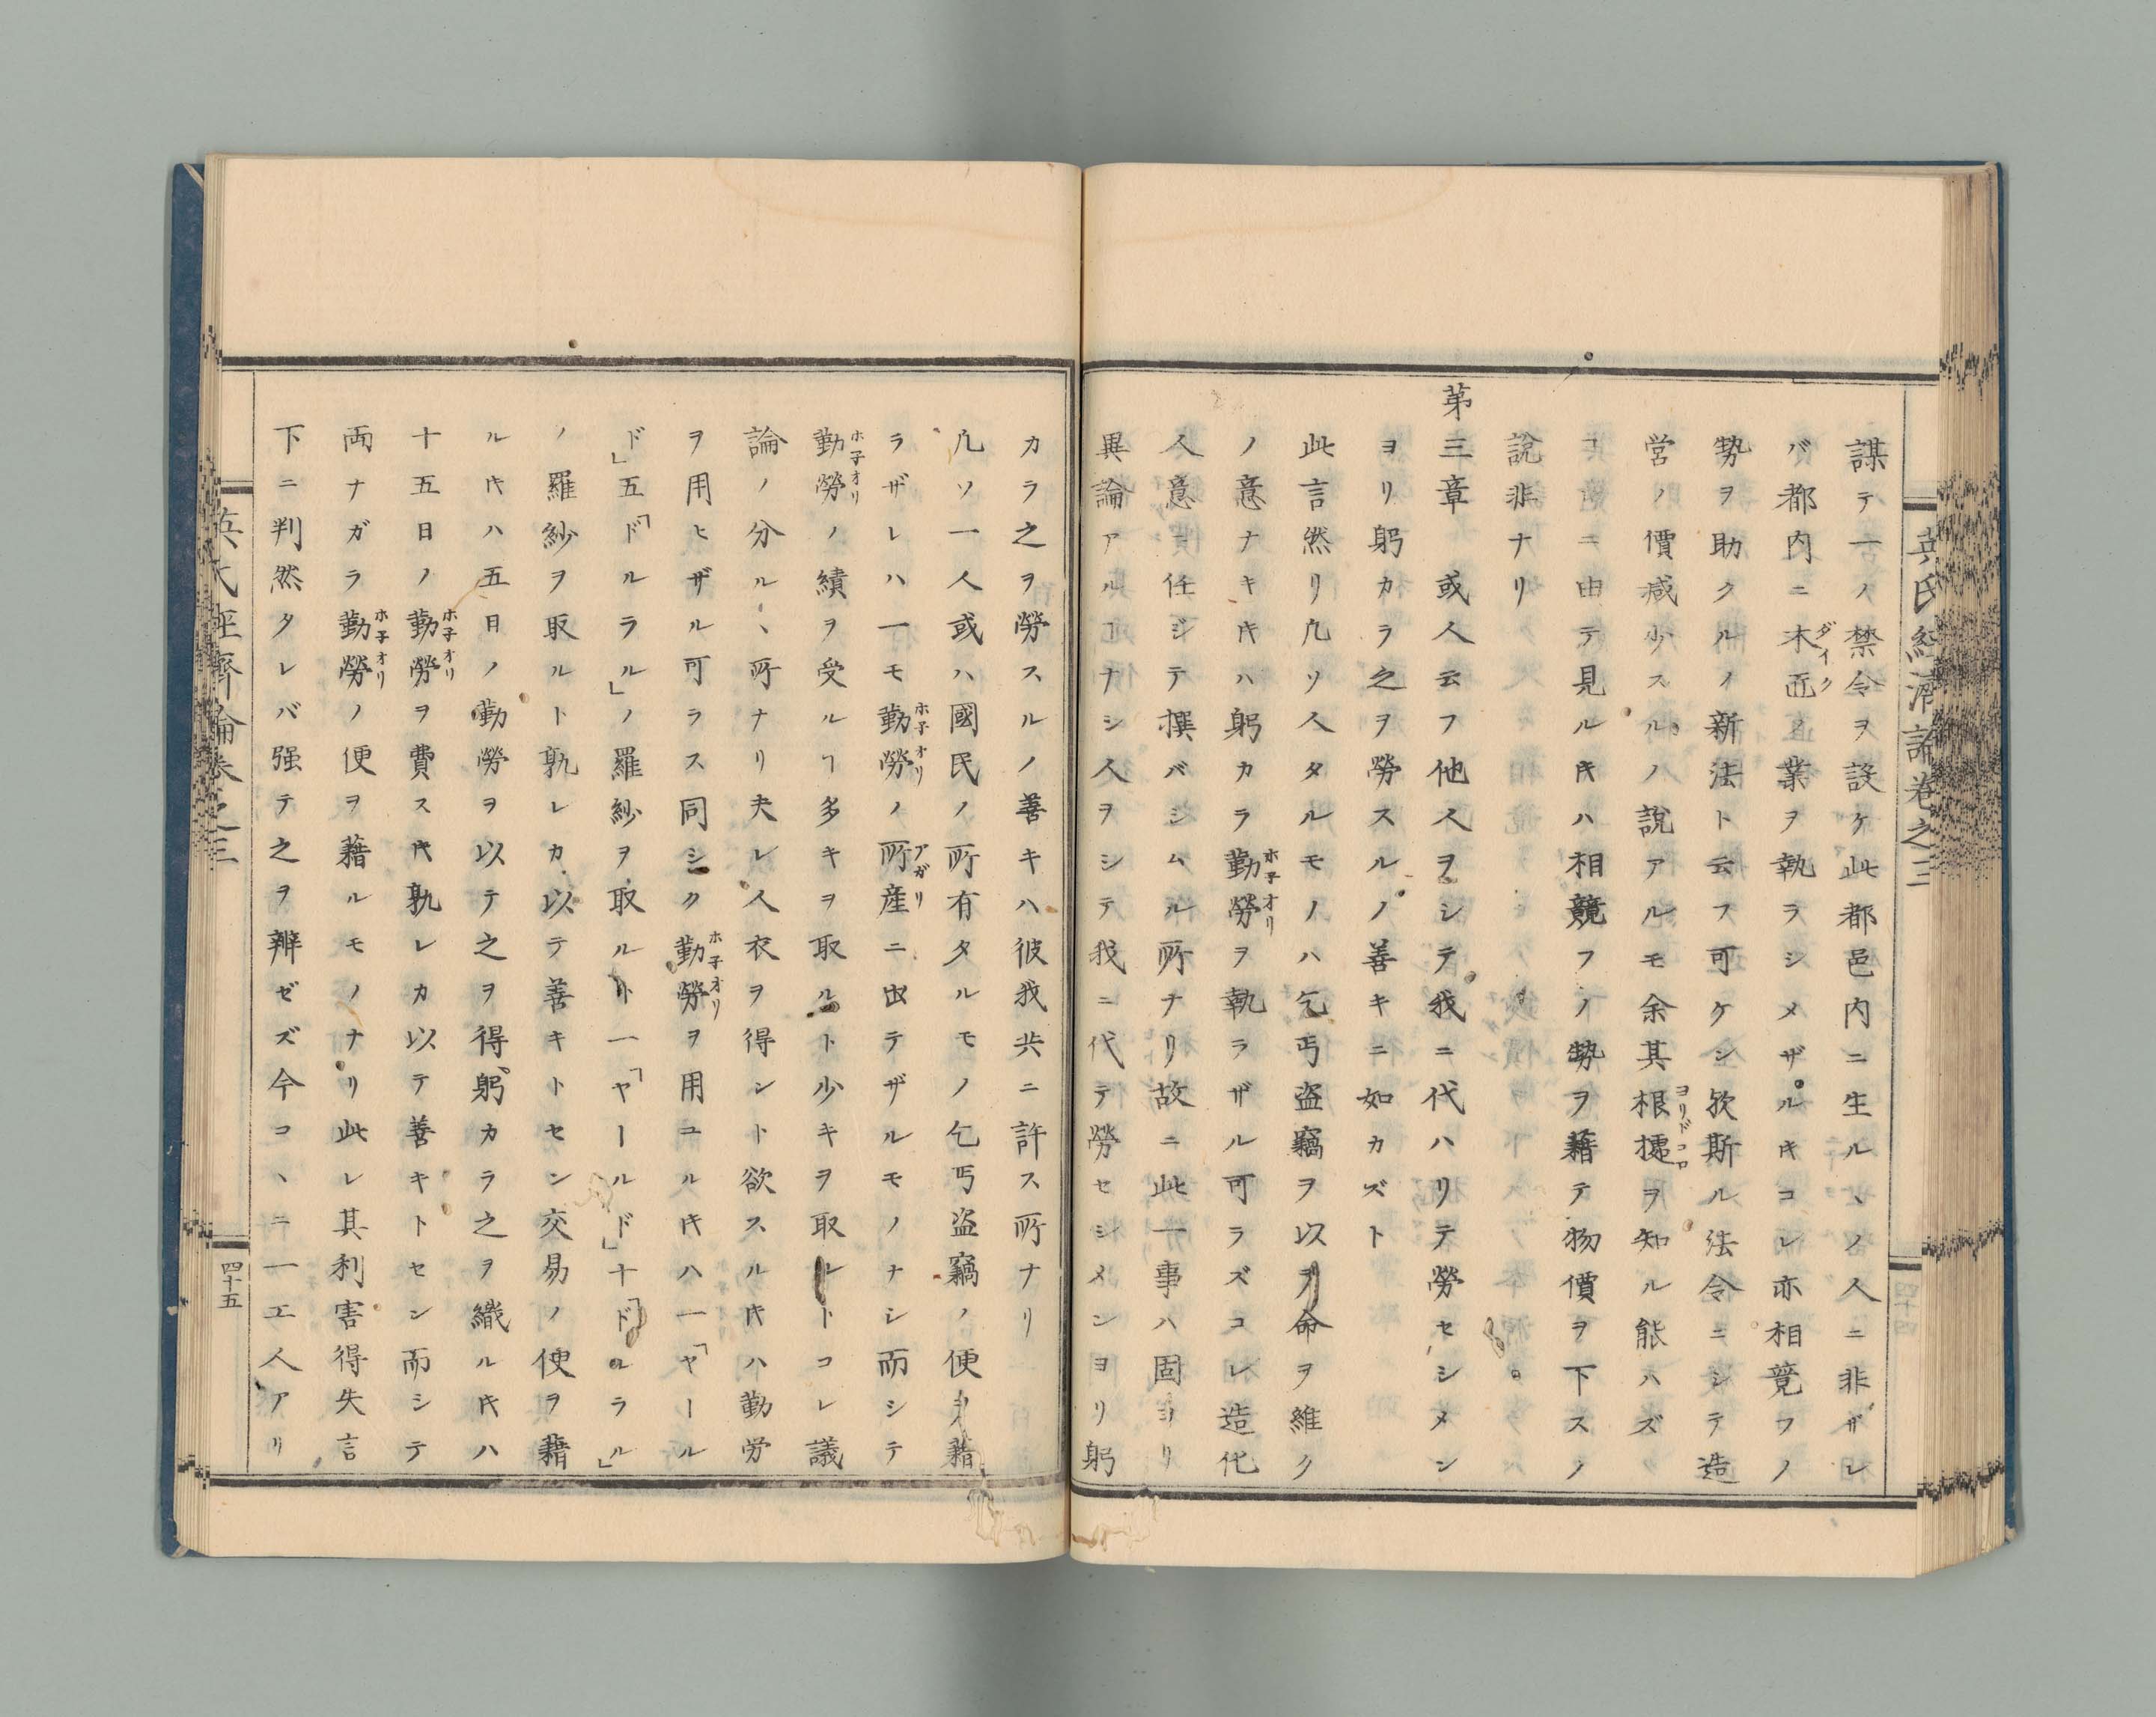 英氏經濟論卷之三
謀テ一ノ禁令ヲ設ケ此都邑内ニ生ル丶ノ人ニ非ザレ
バ都内ニ木匠ノ業ヲ執ラシメザルキコレ亦相競フノ
ダイク
勢ヲ助クルノ新法ト云フ可ケン欤斯ル法令ニシテ造
営ノ價減少スルノ説アルモ余其根據ヲ知ル能ハズ
ヨリドコロ
コニ由テ見ルキハ相競フノ勢ヲ藉テ物價ヲ下スノ
説非ナリ
第三章 或人云フ他人ヲシテ我ニ代ハリテ勞セシメン
ヨリ躬カラ之ヲ勞スルノ善キニ如カズト
此言然リ凡ソ人タルモノハ乞丐盗竊ヲ以テ命ヲ維ク
ノ意ナキキハ躬カラ勤勞ヲ執ラザル可ラズコレ造化
ホ子オリ
人意ニ任ジテ撰バシムル所ナリ故ニ此一事ハ固ヨリ
異論アルヿナシ人ヲシテ我ニ代テ勞セシメンヨリ躬
四十四
カラ之ヲ勞スルノ善キハ彼我共ニ許ス所ナリ
凡ソ一人或ハ國民ノ所有タルモノ乞丐盗竊ノ便ヲ藉
ラザレハ一モ勤勞ノ所産ニ出テザルモノナシ而シテ
ホ子オリ
アガリ
勤勞ノ績ヲ受ルヿ多キヲ取ルト少キヲ取ルトコレ議
ホ子オリ
論ノ分ル丶所ナリ夫レ人衣ヲ得ント欲スルキハ勤労
ヲ用ヒザル可ラス同シク勤勞ヲ用ユルキハ一「ヤール
ホ子オリ
ド」五「ドルラル」ノ羅紗ヲ取ルト一「ヤールド」十「ドルラル」
ノ羅紗ヲ取ルト孰レカ以テ善キトセン交易ノ便ヲ藉
ルキハ五日ノ勤勞ヲ以テ之ヲ得躬カラ之ヲ織ルキハ
十五日ノ勤勞ヲ費スキ孰レカ以テ善キトセン而シテ
ホ子オリ
両ナガラ勤勞ノ便ヲ藉ルモノナリ此レ其利害得失言
ホ子オリ
下ニ判然タレバ强テ之ヲ辨ゼズ今コ丶ニ一工人アリ
英氏經濟論卷之三
四十五